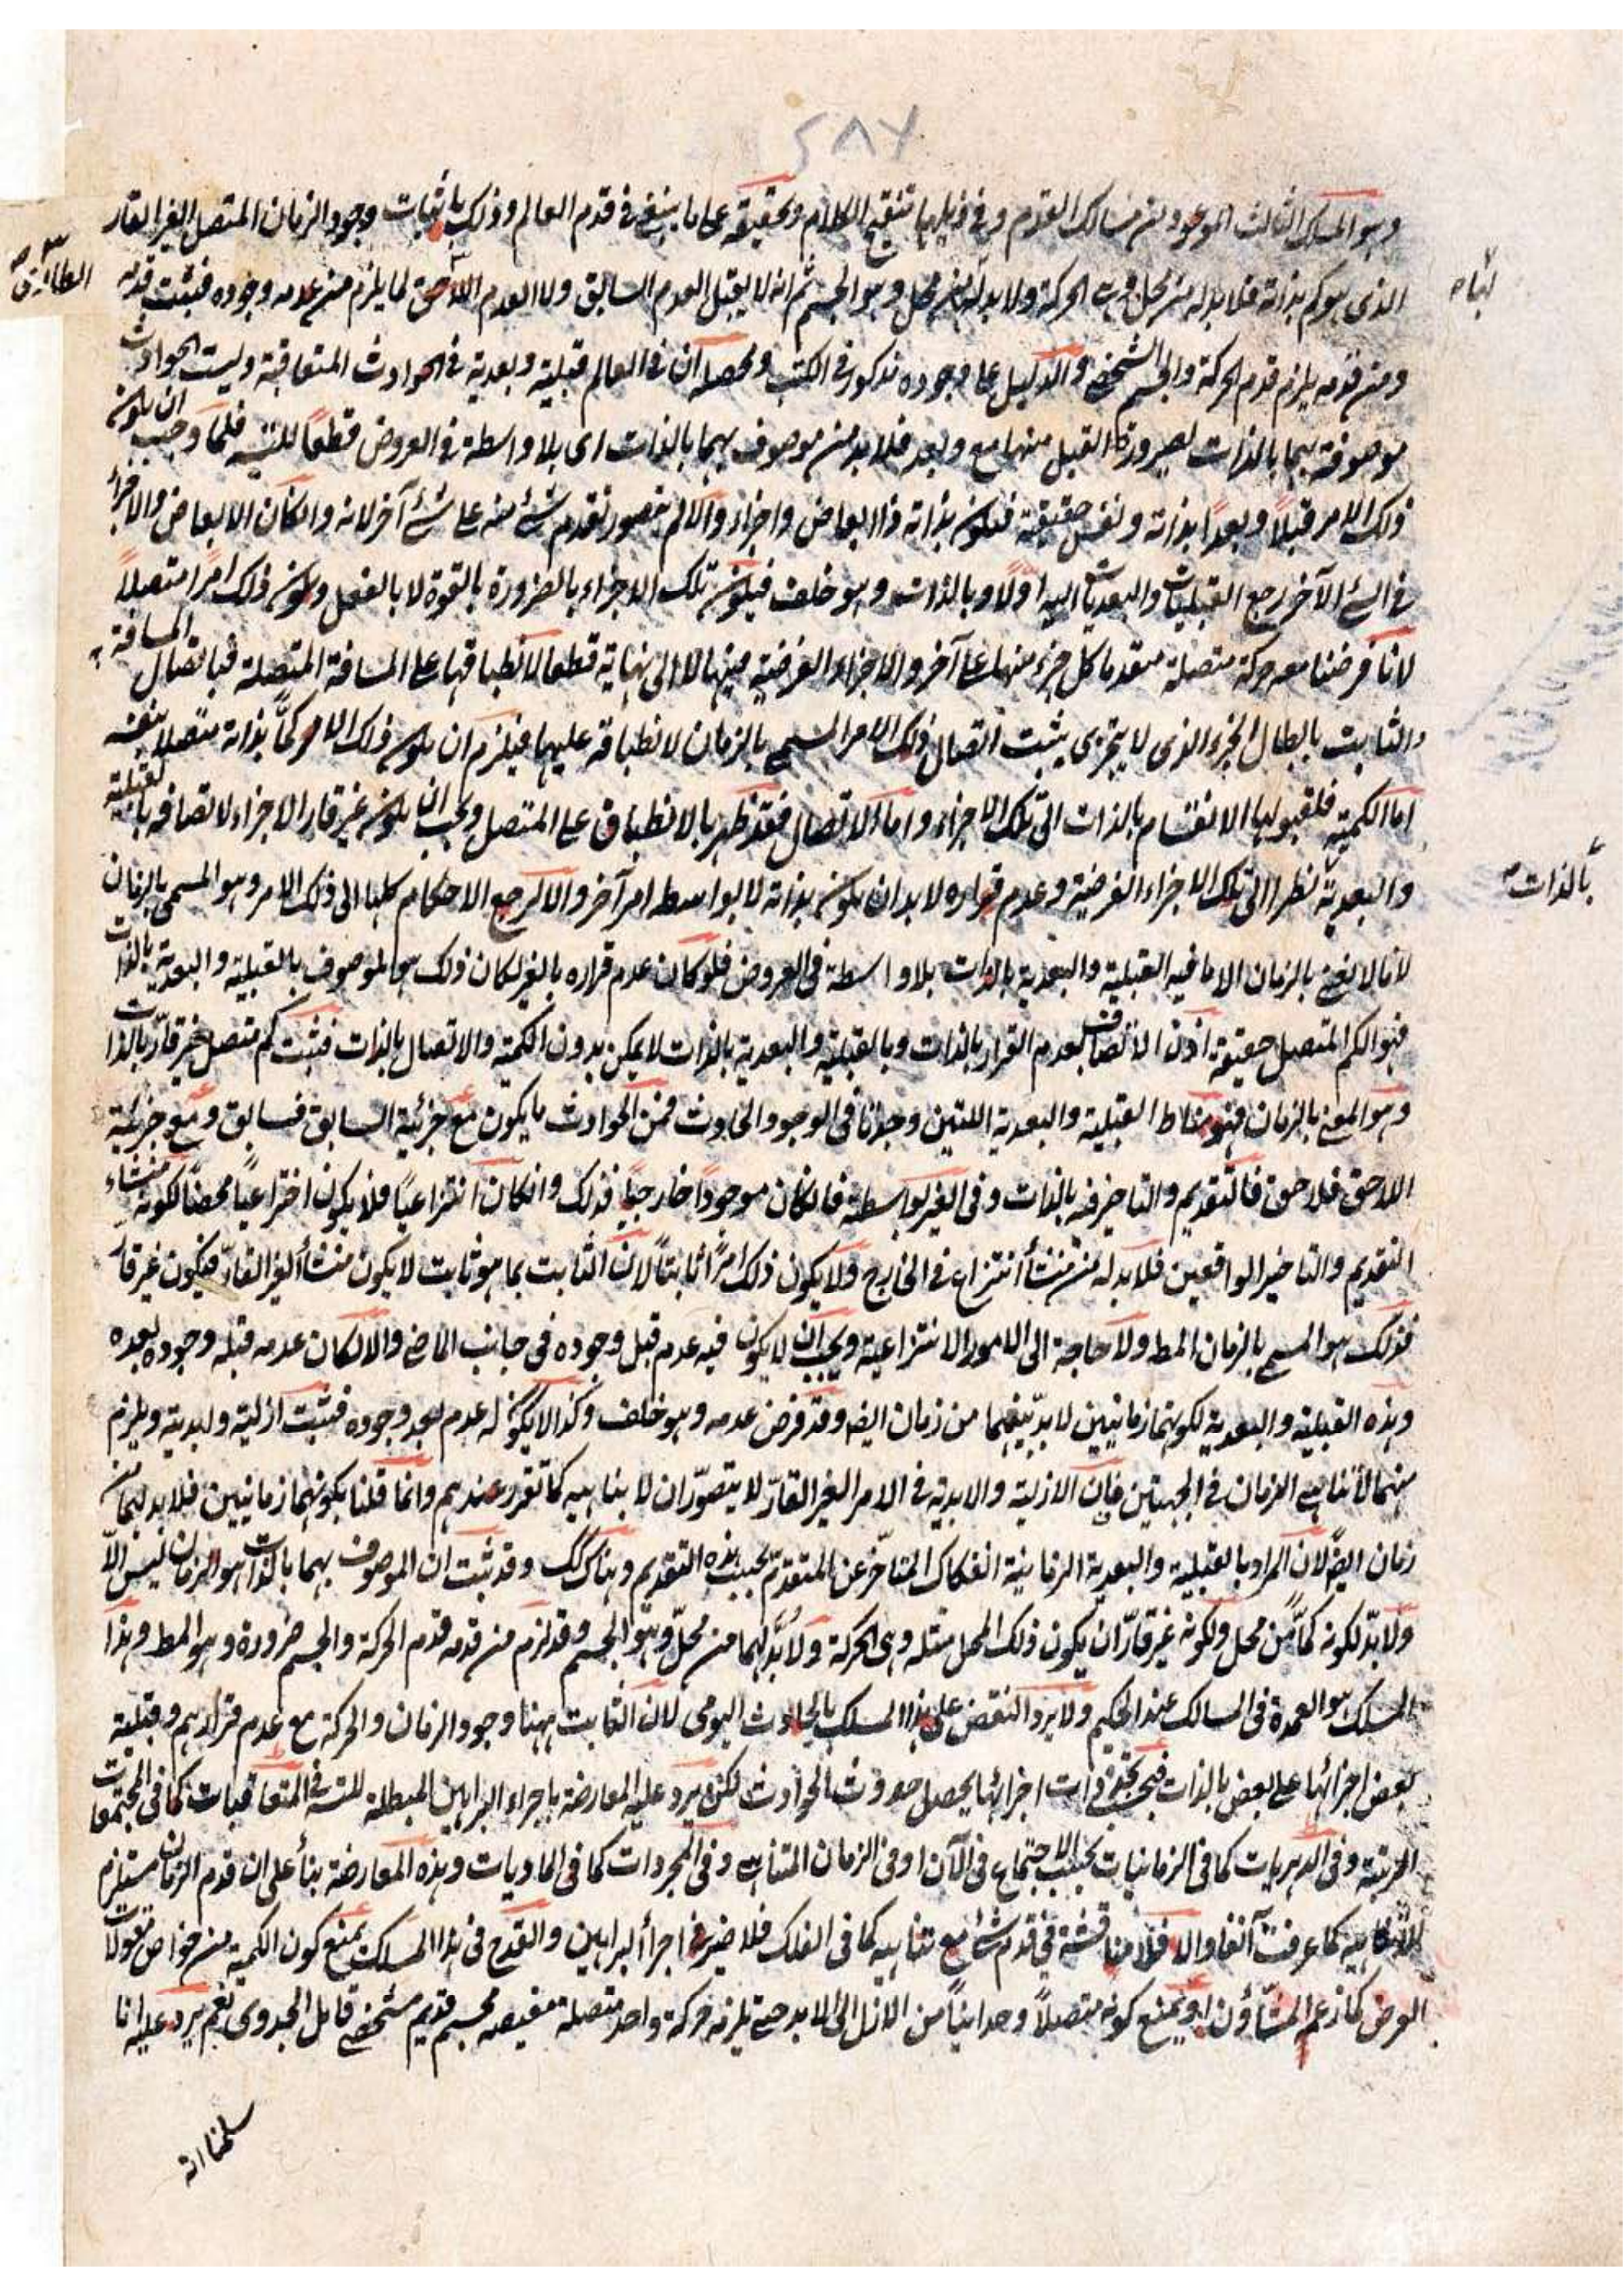 ٢٨٧
وهو المسلك الثالث الموعود من مسالك القدم وفي ذيلها تنقيح الكلام وتحقيقه على ما ينبغي في قدم العالم وذلك باثبات وجود الزمان المتصل الغير القار
الذي هو كم بذاته فلا بد له من محل وهي الحركة ولا بد لها من محل وهو الجسم ثم انه لا يقبل العدم السابق ولا العدم اللاحق لما يلزم من عدمه وجوده فيثبت قدمه
ومن قدمه يلزم قدم الحركة والجسم الشخصي والدليل على وجوده مذكور في الكتب ومحصله ان في العالم قبلية وبعدية في الحوادث المتعاقبة وليست الحوادث
موصوفة بهما بالذات لصيرورة القبل منها مع وبعد فلا بد من موصوف بهما بالذات اى بلا واسطة في العروض قطعاً للتسـ فلما وجب ان يكون
ذلك الامر قبلاً وبعداً بذاته ونفس حقيقته فيكون بذاته ذا ابعاض واجزاء والا لم يتصور تقدم شئ منه على شئ آخر لانه وان كان الابعاض والاجزاء
في الشئ الآخر رجع القبليات والبعديات اليه اولاً وبالذات وهو خلف فيكون تلك الاجزاء بالضرورة بالقوة لا بالفعل ويكون ذلك امراً متصلاً
لانا فرضنا معه حركة متصلة متقدما كل جزء منها على آخر والاجزاء الفرضية فيها لا الى نهاية قطعا لانطباقها على المسافة المتصلة فباتصال المسافة
والثابت بابطال الجزء الذي لا يتجزى يثبت اتصال ذلك الامر المسمى بالزمان لانطباقه عليهما فيلزم ان يكون ذلك الامر كمّاً بذاته متصلاً بنفسه
اما الكمية فلقبولها الانقسام بالذات الى تلك الاجزاء واما الاتصال فقد ظهر بالانطباق على المتصل ويجب ان يكون غير قار الاجزاء لاتصافه بالقبلية
والبعدية نظرا الى تلك الاجزاء الفرضية وعدم قراره لا بد ان يكون بذاته لا بواسطه امر آخر والا لرجع الاحكام كلها الى ذلك الامر وهو المسمى بالزمان
لانا لا نعنى بالزمان الا ما فيه القبلية والبعدية بالذات بلا واسطة في العروض فلو كان عدم قراره بالغير لكان ذلك هو الموصوف بالقبلية والبعدية بالذات
فهو الكم المتصل حقيقة اذن الاتصاف بعدم القرار بالذات وبالقبلية والبعدية بالذات لا يمكن بدون الكمية والاتصال بالذات فيثبت كم متصل غير قارّ بالذات
وهو المعنى بالزمان فهو مناط القبلية والبعدية اللتين وجدنا في الوجود والحادث فمن الحوادث ما يكون مع جزئية السابق فسابق ومع جزئية
اللاحق فلاحق فالتقديم والتاخير فيه بالذات وفي الغير بواسطة فان كان موجوداً خارجياً فذلك وان كان انتزاعياً فلا يكون اختراعياً محضاً لكونه منشاء
التقديم والتاخير الواقعين فلا بد له من منشأ انتزاع في الخارج ولا يكون ذلك امراً ثابتاً لان الثابت بما هو ثابت لا يكون منشأ لغير القارّ فيكون غير قارّ
فذلك هو المسمى بالزمان المط ولا حاجة الى الامور الانتزاعية ويجب ان لا يكون فيه عدم قبل وجوده في جانب الماضي والا لكان عدمه قبله وجوده بعده
وهذه القبلية والبعدية لكونهما زمانيين لا بد بينهما من زمان ايضا وقد فرض عدمه وهو خلف وكذا لا يكون له عدم بعد وجوده فيثبت ازلية وابدية ويلزم
منهما لا تناهى الزمان في الجهتين فان الازلية والابدية في الامر الغير القارّ لا يتصوّر ان لا بنا هيه كما تقرر عندهم وانما قلنا بكونهما زمانيين فلا بد لهما من
زمان ايضا لان المراد بالقبلية والبعدية الزمانية انفكاك المتأخر عن المتقدم بحسب هذه التقديم وهناك كك وقد ثبت ان الموصوف بهما بالذات هو الزمان ليس الّا
ولا بدّ لكونه كمّاً من محل ولكونه غير قارّ ان يكون ذلك المحل مثله وهى الحركة ولا بدّ لهما من محلّ وهو الجسم وقد لزم من قدمه قدم الحركة والجسم ضرورة وهو المط وهذا
المسلك هو العمدة في المسالك عند الحكيم ولا يرد النقض على هذا المسلك بالحادث اليومى لان الثابت ههنا وجود الزمان والحركة مع عدم قرارهم وقبلية
بعض اجزائها على بعض بالذات فبتجدد ذات اجزائها يحصل حدوث الحوادث لكن يرد عليه المعارضة باجراء البراهين المبطلة للتسـ في المتعاقبات كما في المجتمعات
المرتبة وفي الدهريات كما في الزمانيات بحسب الاجتماع في الآن او في الزمان المتناهى وفي المجردات كما في الماديات وهذه المعارضة بناء على ان قدم الزمان مستلزم
للاتناهيه كما عرفت آنفا والا فلا مناقشة في قدم شئ مع تناهيه كما في الفلك فلا ضير في اجراء البراهين والقدح في هذا المسلك بمنع كون الكمية من خواص مقولات
العرض كما زعم المشّاؤن او بمنع كونه متصلاً وحدانياً من الازل الى الابد حتى يلزمه حركة واحدة متصلة مقيمه بجسم قديم مشخص قابل الجدوى نعم يرد عليه انا
سلمنا انه
لها
بالذات